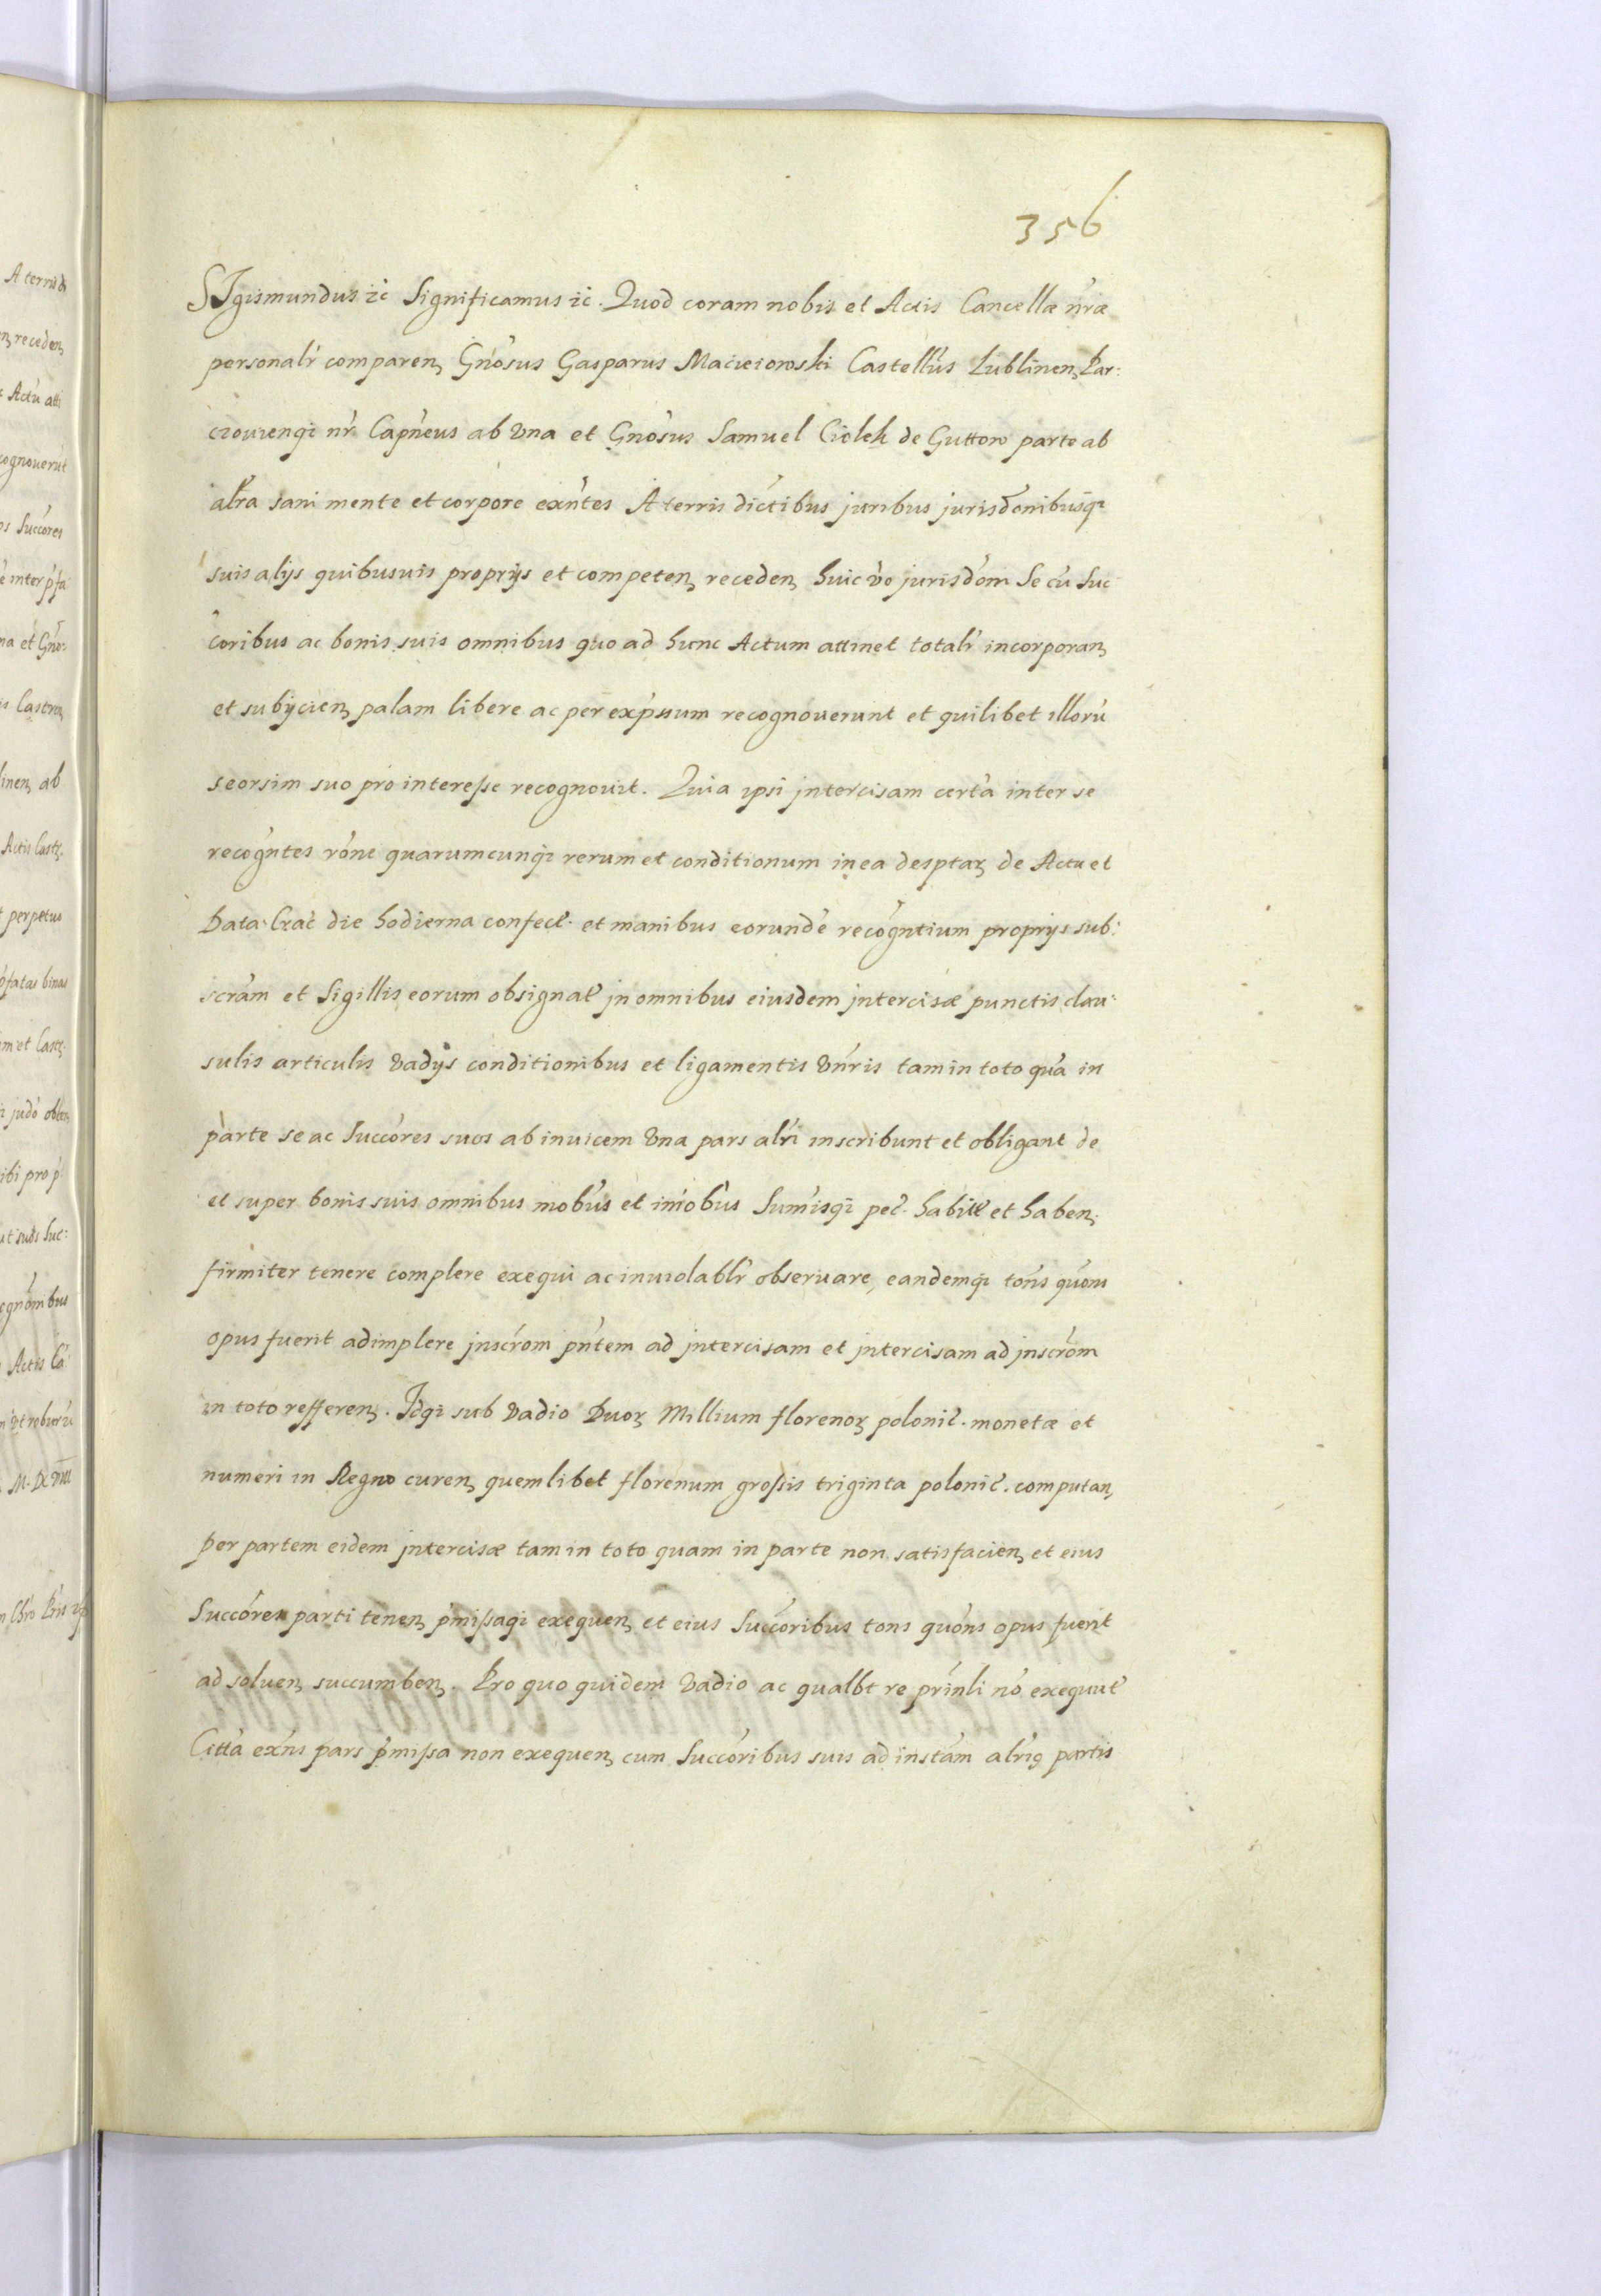 356
SIgismundus ꝛc̃ Significamus ꝛc̃. Quod coram nobis et Actis Cancellæ nr̃æ
personalr̃ comparen̨ Gnõsus Gasparus Macieiowski Castellũs Lublinen̨ Par:
czouienqꝫ nr̃ Capñeus ab Vna et Gnõsus Samuel Ciolek de Guttow parte ab
alr̃a sani mente et corpore exñtes A terris dictibus juribus jurisdõnibusqꝫ
suis alijs quibusuis proprijs et competen̨ receden̨ huic v̄o jurisdõni Se cũ Suc
cõribus ac bonis suis omnibus quo ad hunc Actum attinet totalr̃ incorporan̨
et subijcien̨ palam libere ac per exp̃ssum recognouerunt et quilibet illorũ
seorsim suo pro interesse recognouit. Quia ipsi jntercisam certã inter se
recogñtes rõne quarumcunqꝫ rerum et conditionum in ea desptaꝝ de Actu et
Data Crac̃ die hodierna confect̃. et manibus eorundẽ recogñtium proprijs sub:
scrãm et Sigillis eorum obsignat̃ jn omnibus eiusdem jntercisæ punctis clau:
sulis articulis Vadijs conditionibus et ligamentis Vnr̃is tam in toto quã in
parte se ac Succõres suos ab inuicem Vna pars alr̃i inscribunt et obligant de
et super bonis suis omnibus mobũs et imõbus Sum̃isqꝫ pec̃. habit̃ et haben̨
firmiter tenere complere exequi ac inuiolablr̃ obseruare, eandemqꝫ tõns quõns
opus fuerit adimplere jnscrõm pñtem ad jntercisam et jntercisam ad jnscrõm
in toto refferen̨. Jdqꝫ sub Vadio Duoꝝ Millium florenoꝝ polonic̃. monetæ et
numeri in Regno curen̨ quemlibet florenum grossis triginta polonic̃. computan̨
per partem eidem jntercisæ tam in toto quam in parte non satisfacien̨ et eius
Succõres parti tenen̨ p̃missaqꝫ exequen̨ et eius Succõribus tons quõns opus fuerit
ad soluen̨ succumben̨. Pro quo quidem Vadio ac qualbt re prĩnli nõ exequut̃
Cittã exñs pars p̃missa non exequen̨ cum Succõribus suis ad instãm alr̃iꝰ partis